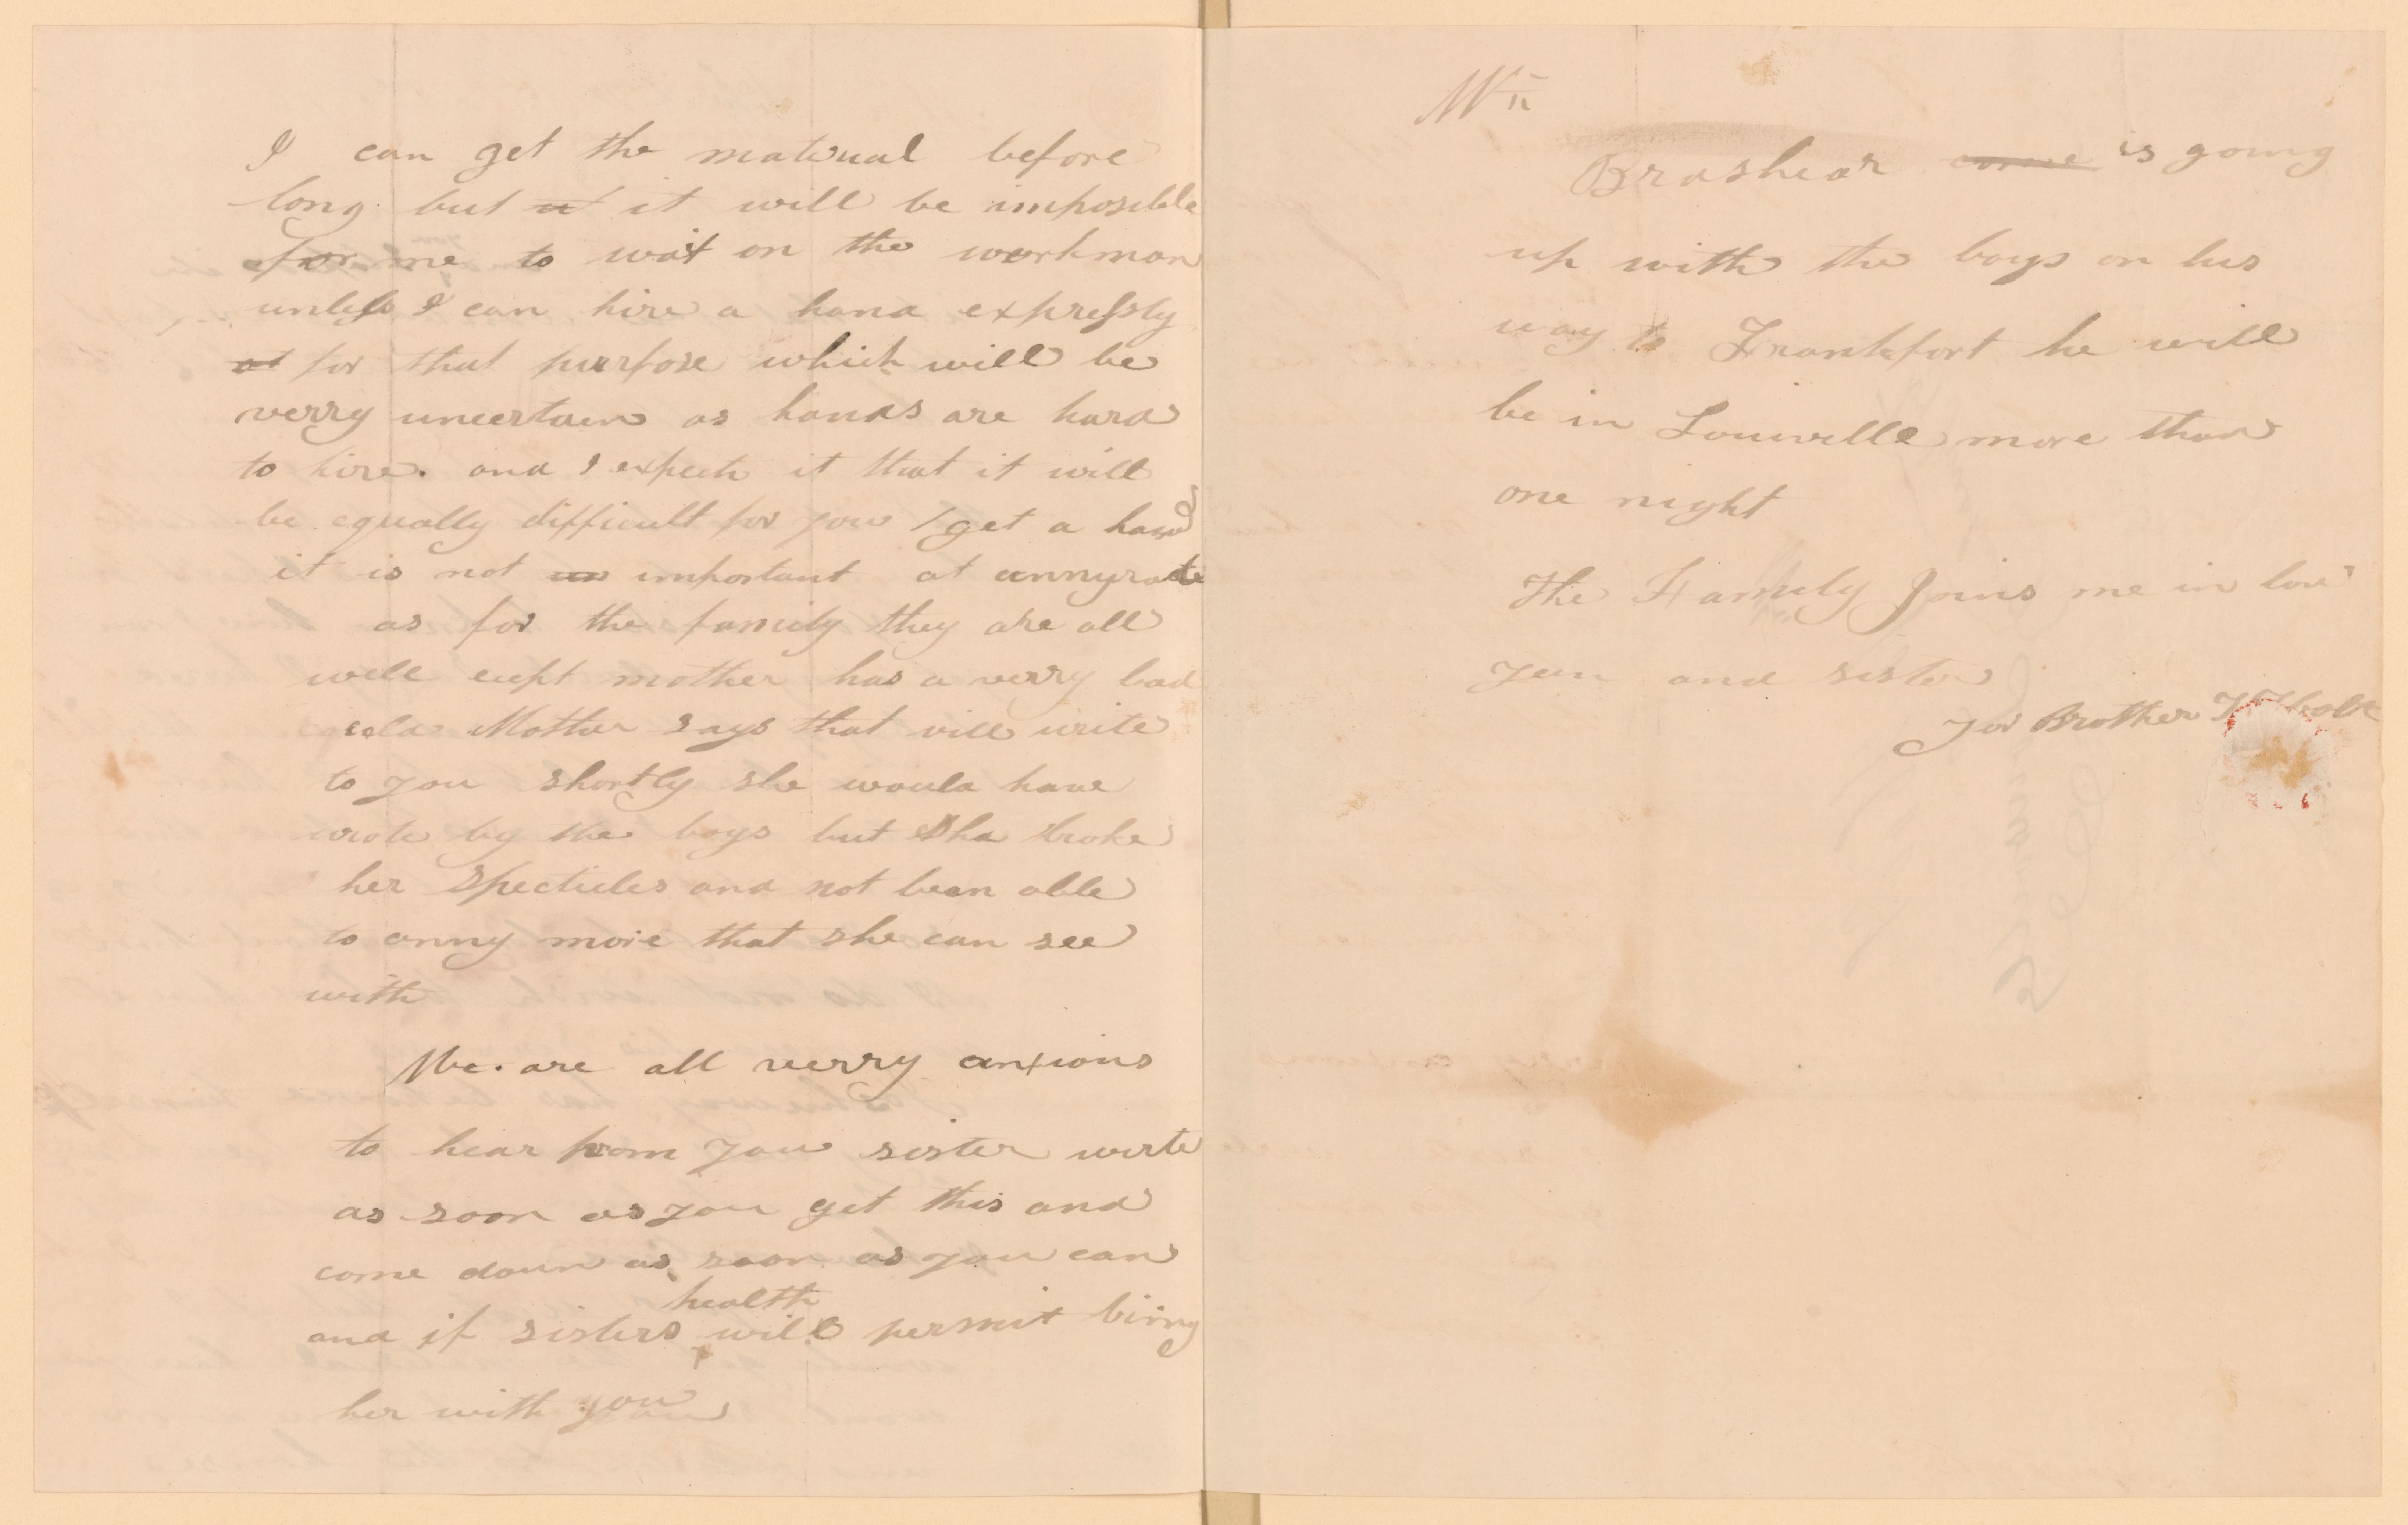 I can get the material before
long but it it will be imposible
for me to wait on the workman
unless I can hire a hand expressly
at for that purpose which will be
verry uncertain as hands are hard
to hire. and I expect it that it will
be equally difficult for you / get a hand
it is not un important at annyrate
as for the family they are all
well exept mother has a verry bad
cold Mother says that will write
to you shortly she would have
wrote by the boys but Sha broke
her Specticles and not been able
to anny more that she can see
with
We. are all verry anxious
to hear from you sister write
as soon as you get this and
come down as soon as you can
health
and if sisters will permit bring
her with you
Brashear come is going
up with the boys on his
way to Frankfort he will
be in Louisville more than
one night
The Family Joins me in love
you and sister
Your Brother